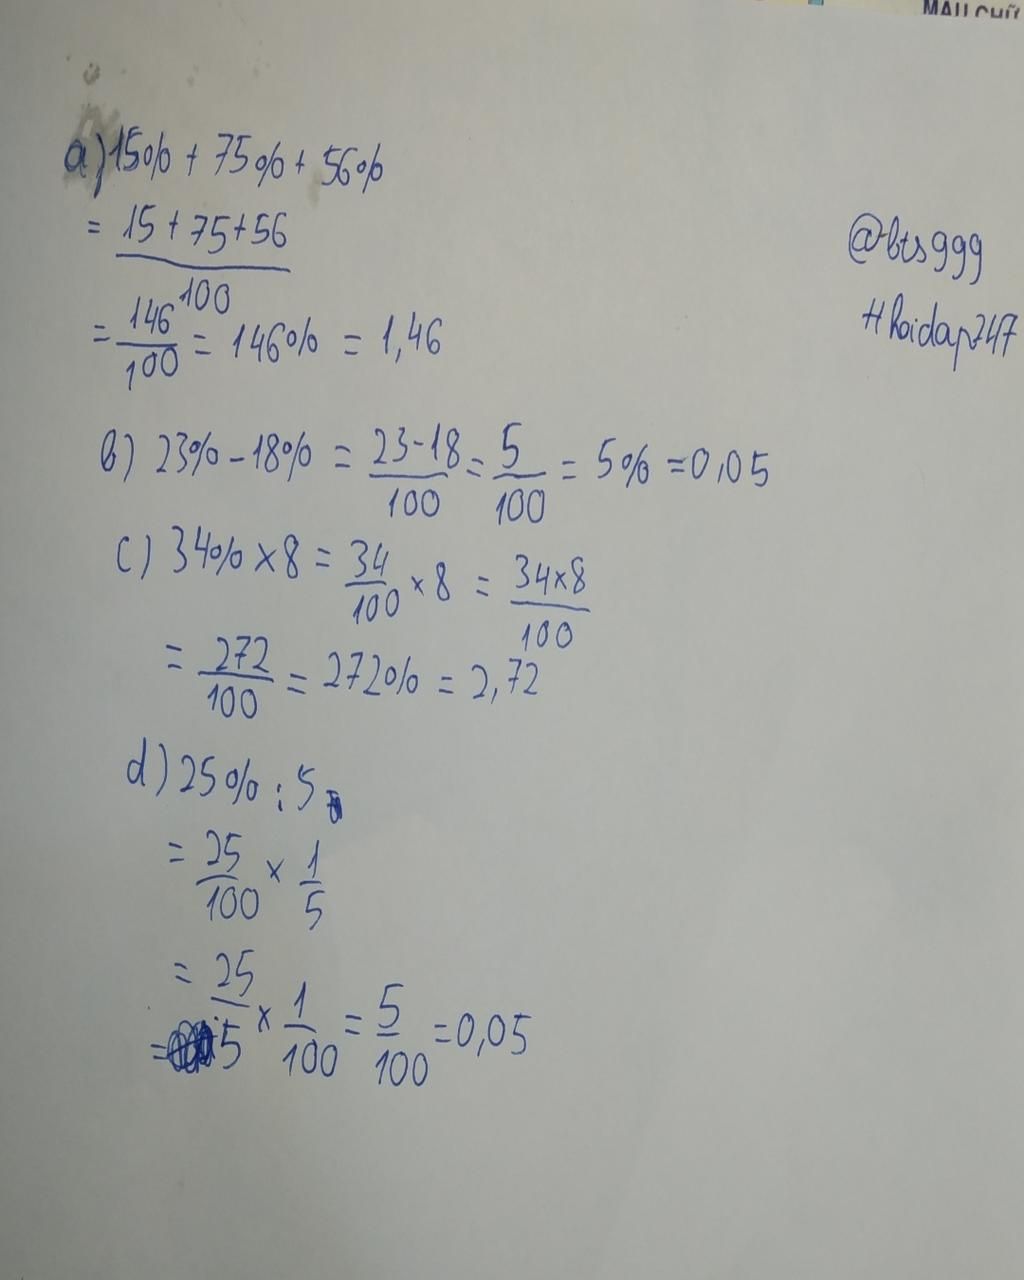 MẪU CHỮ
a) 15% + 75% + 56%
= \frac{15 + 75 + 56}{100}
= \frac{146}{100} = 146% = 1,46
@bts999
#hoidap247
b) 23% - 18% = \frac{23 - 18}{100} = \frac{5}{100} = 5% = 0,05
c) 34% × 8 = \frac{34}{100} × 8 = \frac{34 × 8}{100}
= \frac{272}{100} = 272% = 2,72
d) 25% : 5
= \frac{25}{100} × \frac{1}{5}
= \frac{25}{5} × \frac{1}{100} = \frac{5}{100} = 0,05